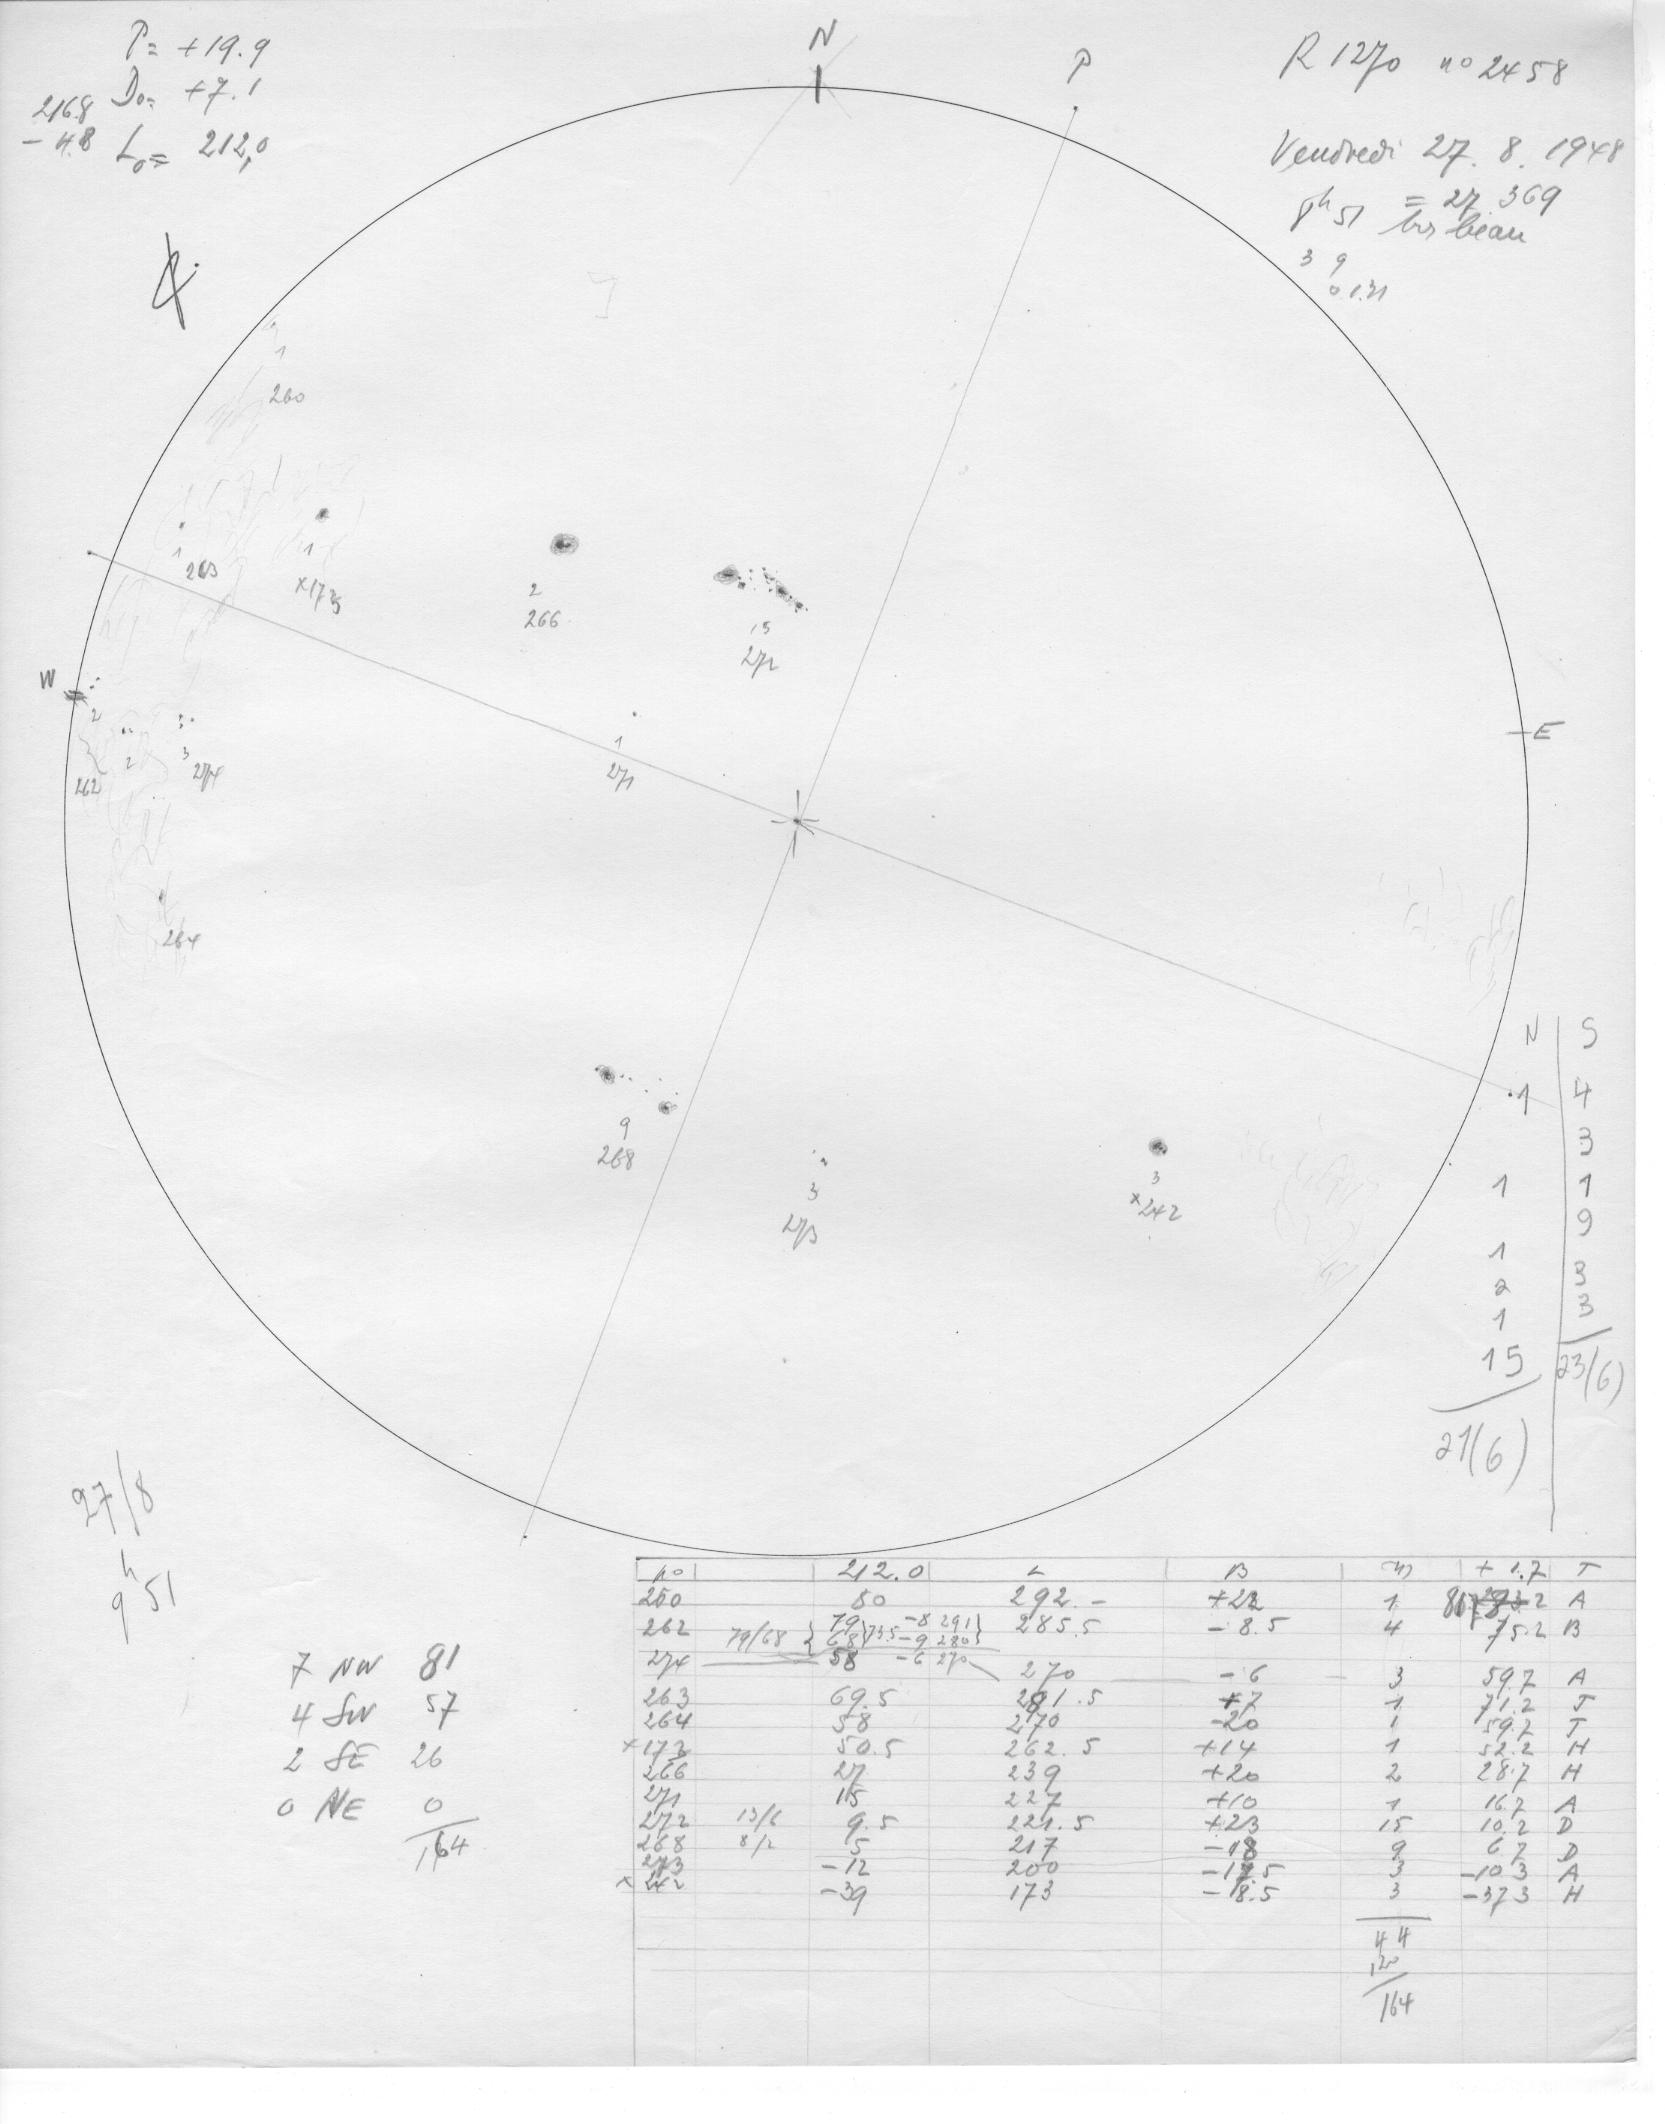 P = +19.9
D₀= +7.1
216.8
- 4.8 L₀= 212,0
N
P
R 1270 no 2458
Vendredi 27. 8. 1948
8h 51 = 27.369
trs beau
3 9
0 1.31
1
260
1
263
1
x173
2
266
15
272
W
2
2
262
3
274
1
271
E
264
9
268
3
273
3
x242
N | S
1 | 4
3
1 | 1
9
1
2 | 3
1 | 3
15 | 23(6)
21(6)
27/8
9h 51
7 NW 81
4 SW 57
2 SE 26
0 NE 0
164
no 212.0 L B + 1.7 T
260 80 292.- +22 1 A
262 79/68 79 68 73.5 -8 291 -9 280 285.5 -8.5 4 75.2 B
274 58 -6 270 270 -6 3 59.7 A
263 69.5 281.5 +7 1 71.2 J
264 58 270 -20 1 59.7 J
x173 50.5 262.5 +14 1 52.2 H
266 27 239 +20 2 28.7 H
271 15 227 +10 1 16.7 A
272 13/6 9.5 221.5 +23 15 10.2 D
268 8/2 5 217 -18 9 6.7 D
273 -12 200 -17.5 3 -10.3 A
x 242 -39 173 -18.5 3 -37.3 H
44
120
164